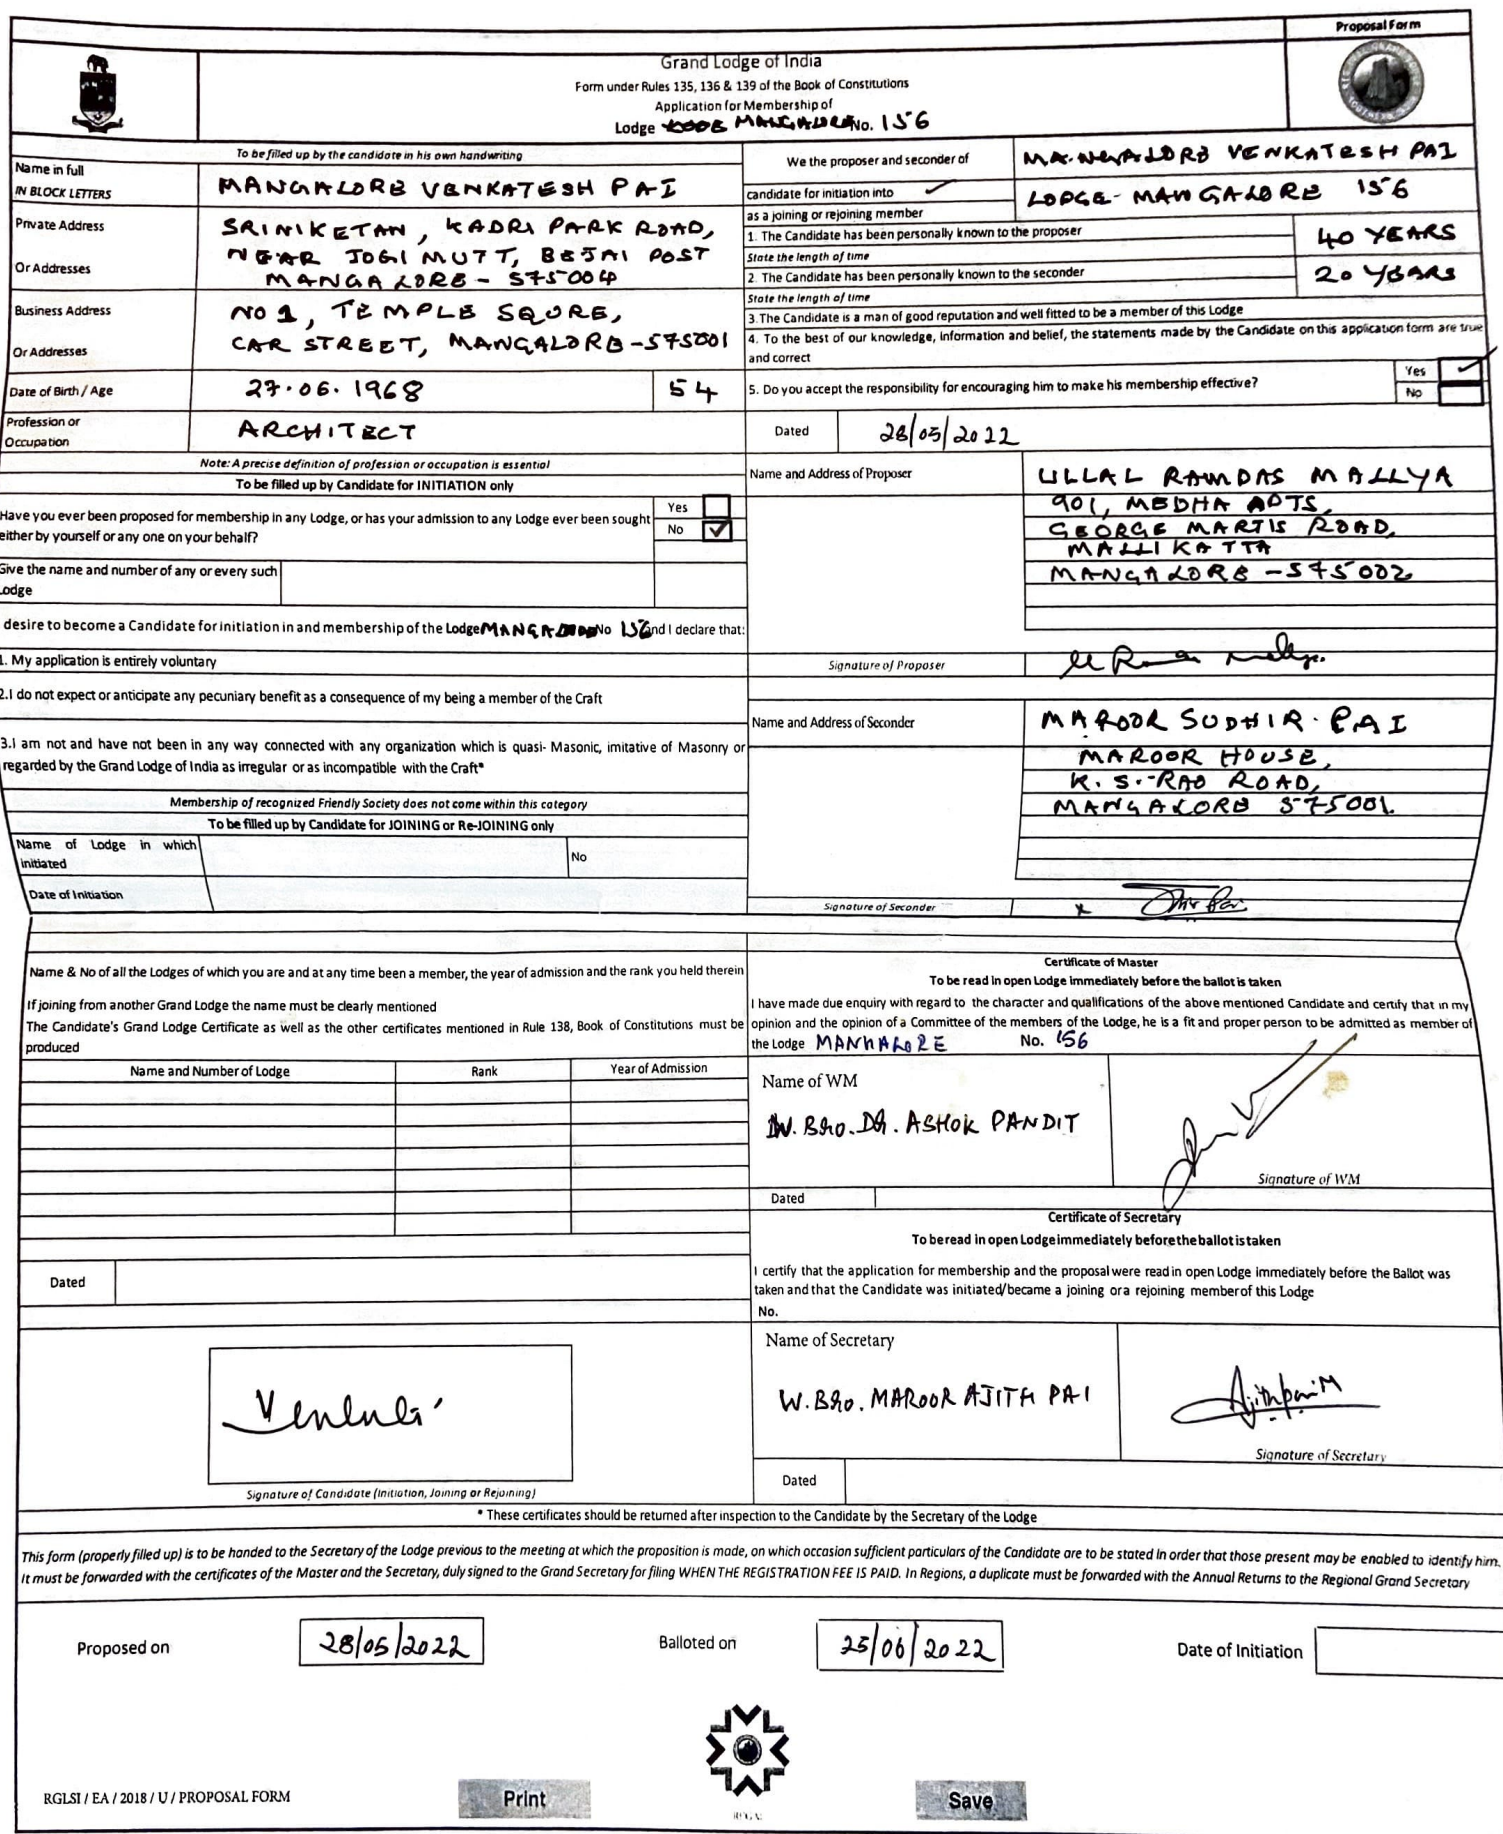 Proposal Form
Grand Lodge of India
Form under Rules 135, 136 & 139 of the Book of Constitutions
Application for Membership of
Lodge MANGALORE No. 156
To be filled up by the candidate in his own handwriting
Name in full
IN BLOCK LETTERS
MANGALORE VENKATESH PAI
Private Address
Or Addresses
SRINIKETAN, KADRI PARK ROAD,
NEAR JOGI MUTT, BEJAI POST
MANGALORE - 575004
Business Address
Or Addresses
NO 1, TEMPLE SQURE,
CAR STREET, MANGALORE-575001
Date of Birth / Age
27.06.1968
54
Profession or
Occupation
ARCHITECT
Note: A precise definition of profession or occupation is essential
To be filled up by Candidate for INITIATION only
Have you ever been proposed for membership in any Lodge, or has your admission to any Lodge ever been sought
either by yourself or any one on your behalf?
Yes
No
Give the name and number of any or every such
Lodge
desire to become a Candidate for initiation in and membership of the Lodge MANGALORE No 156 and I declare that:
1. My application is entirely voluntary
2.I do not expect or anticipate any pecuniary benefit as a consequence of my being a member of the Craft
3.I am not and have not been in any way connected with any organization which is quasi- Masonic, imitative of Masonry or
regarded by the Grand Lodge of India as irregular or as incompatible with the Craft*
Membership of recognized Friendly Society does not come within this category
To be filled up by Candidate for JOINING or Re-JOINING only
Name of Lodge in which
initiated
No
Date of Initiation
We the proposer and seconder of
MANGALORE VENKATESH PAI
candidate for initiation into
LODGE - MANGALORE 156
as a joining or rejoining member
1. The Candidate has been personally known to the proposer
State the length of time
40 YEARS
2. The Candidate has been personally known to the seconder
State the length of time
20 YEARS
3.The Candidate is a man of good reputation and well fitted to be a member of this Lodge
4. To the best of our knowledge, information and belief, the statements made by the Candidate on this application form are true
and correct
5. Do you accept the responsibility for encouraging him to make his membership effective?
Yes
No
Dated
28/05/2022
Name and Address of Proposer
ULLAL RAMDAS MALLYA
901, MEDHA APTS,
GEORGE MARTIS ROAD,
MALLIKATTA
MANGALORE - 575002
Signature of Proposer
Name and Address of Seconder
MAROOR SUDHIR. PAI
MAROOR HOUSE,
K. S. RAO ROAD,
MANGALORE 575001.
Signature of Seconder
Name & No of all the Lodges of which you are and at any time been a member, the year of admission and the rank you held therein
If joining from another Grand Lodge the name must be clearly mentioned
The Candidate's Grand Lodge Certificate as well as the other certificates mentioned in Rule 138, Book of Constitutions must be
produced
Name and Number of Lodge
Rank
Year of Admission
Dated
Certificate of Master
To be read in open Lodge immediately before the ballot is taken
I have made due enquiry with regard to the character and qualifications of the above mentioned Candidate and certify that in my
opinion and the opinion of a Committee of the members of the Lodge, he is a fit and proper person to be admitted as member of
the Lodge MANHALORE No. 156
Name of WM
W. BRO. DR. ASHOK PANDIT
Signature of WM
Dated
Certificate of Secretary
To be read in open Lodge immediately before the ballot is taken
I certify that the application for membership and the proposal were read in open Lodge immediately before the Ballot was
taken and that the Candidate was initiated/became a joining ora rejoining memberof this Lodge
No.
Name of Secretary
W. BRO. MAROOR AJITH PAI
Ajithpai M
Signature of Secretary
Dated
Signature of Candidate (Initiation, Joining or Rejoining)
* These certificates should be returned after inspection to the Candidate by the Secretary of the Lodge
This form (properly filled up) is to be handed to the Secretary of the Lodge previous to the meeting at which the proposition is made, on which occasion sufficient particulars of the Candidate are to be stated in order that those present may be enabled to identify him.
It must be forwarded with the certificates of the Master and the Secretary, duly signed to the Grand Secretary for filing WHEN THE REGISTRATION FEE IS PAID. In Regions, a duplicate must be forwarded with the Annual Returns to the Regional Grand Secretary
Proposed on
28/05/2022
Balloted on
25/06/2022
Date of Initiation
RGLSI / EA / 2018 / U / PROPOSAL FORM
Print
Save